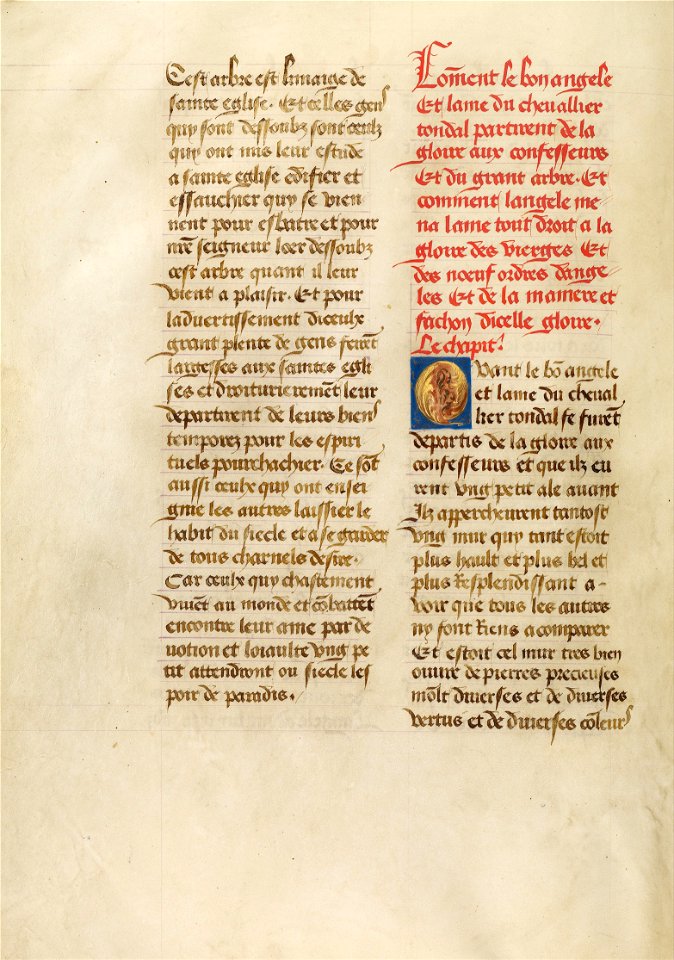 Cest arbre est limaige de
sainte eglise. Et celles gens
quy sont dessoubz sont ceulz
quy ont mis leur estude
a sainte eglise edifier et
essauchier quy se vien
nent pour esbatre et pour
nr̄e seigneur loer dessoubz
cest arbre quant il leur
vient a plaisir. Et pour
ladvertissement diceulx
grant plente de gens firēt
largesses aux saintes egli
ses et droiturierement leur
departirent de leurs biens
temporez pour les espiri
tuels pourchachier. Ce sōt
aussi ceulx quy ont ensei
gnie les autres laissier le
habit du siecle et a se garder
de tous charnels desirs.
Car ceulx quy chastement
vivēt au monde et cōbattēt
encontre leur ame par de
votion et loiaulte ung pe
tit attendront ou siecle les
poir de paradis.
Cōment le bon angele
Et lame du chevallier
tondal partirent de la
gloire aux confesseurs
Et du grant arbre. Et
comment langele me
na lame tout droit a la
gloire des vierges Et
des noeuf ordres dange
les Et de la maniere et
fachon dicelle gloire.
Le chapit.
Quant le bō angele
et lame du cheval
lier tondal se furēt
departis de la gloire aux
confesseurs et que ilz eu
rent ung petit ale avant
Ilz apperchevrent tantost
ung mur quy tant estoit
plus hault et plus bel et
plus Resplendissant a-
voir que tous les autres
ny font Riens a comparer
Et estoit cel mur tres bien
ouvre de pierres precieuses
mōlt diverses et de diverses
vertus et de diverses cōleurs